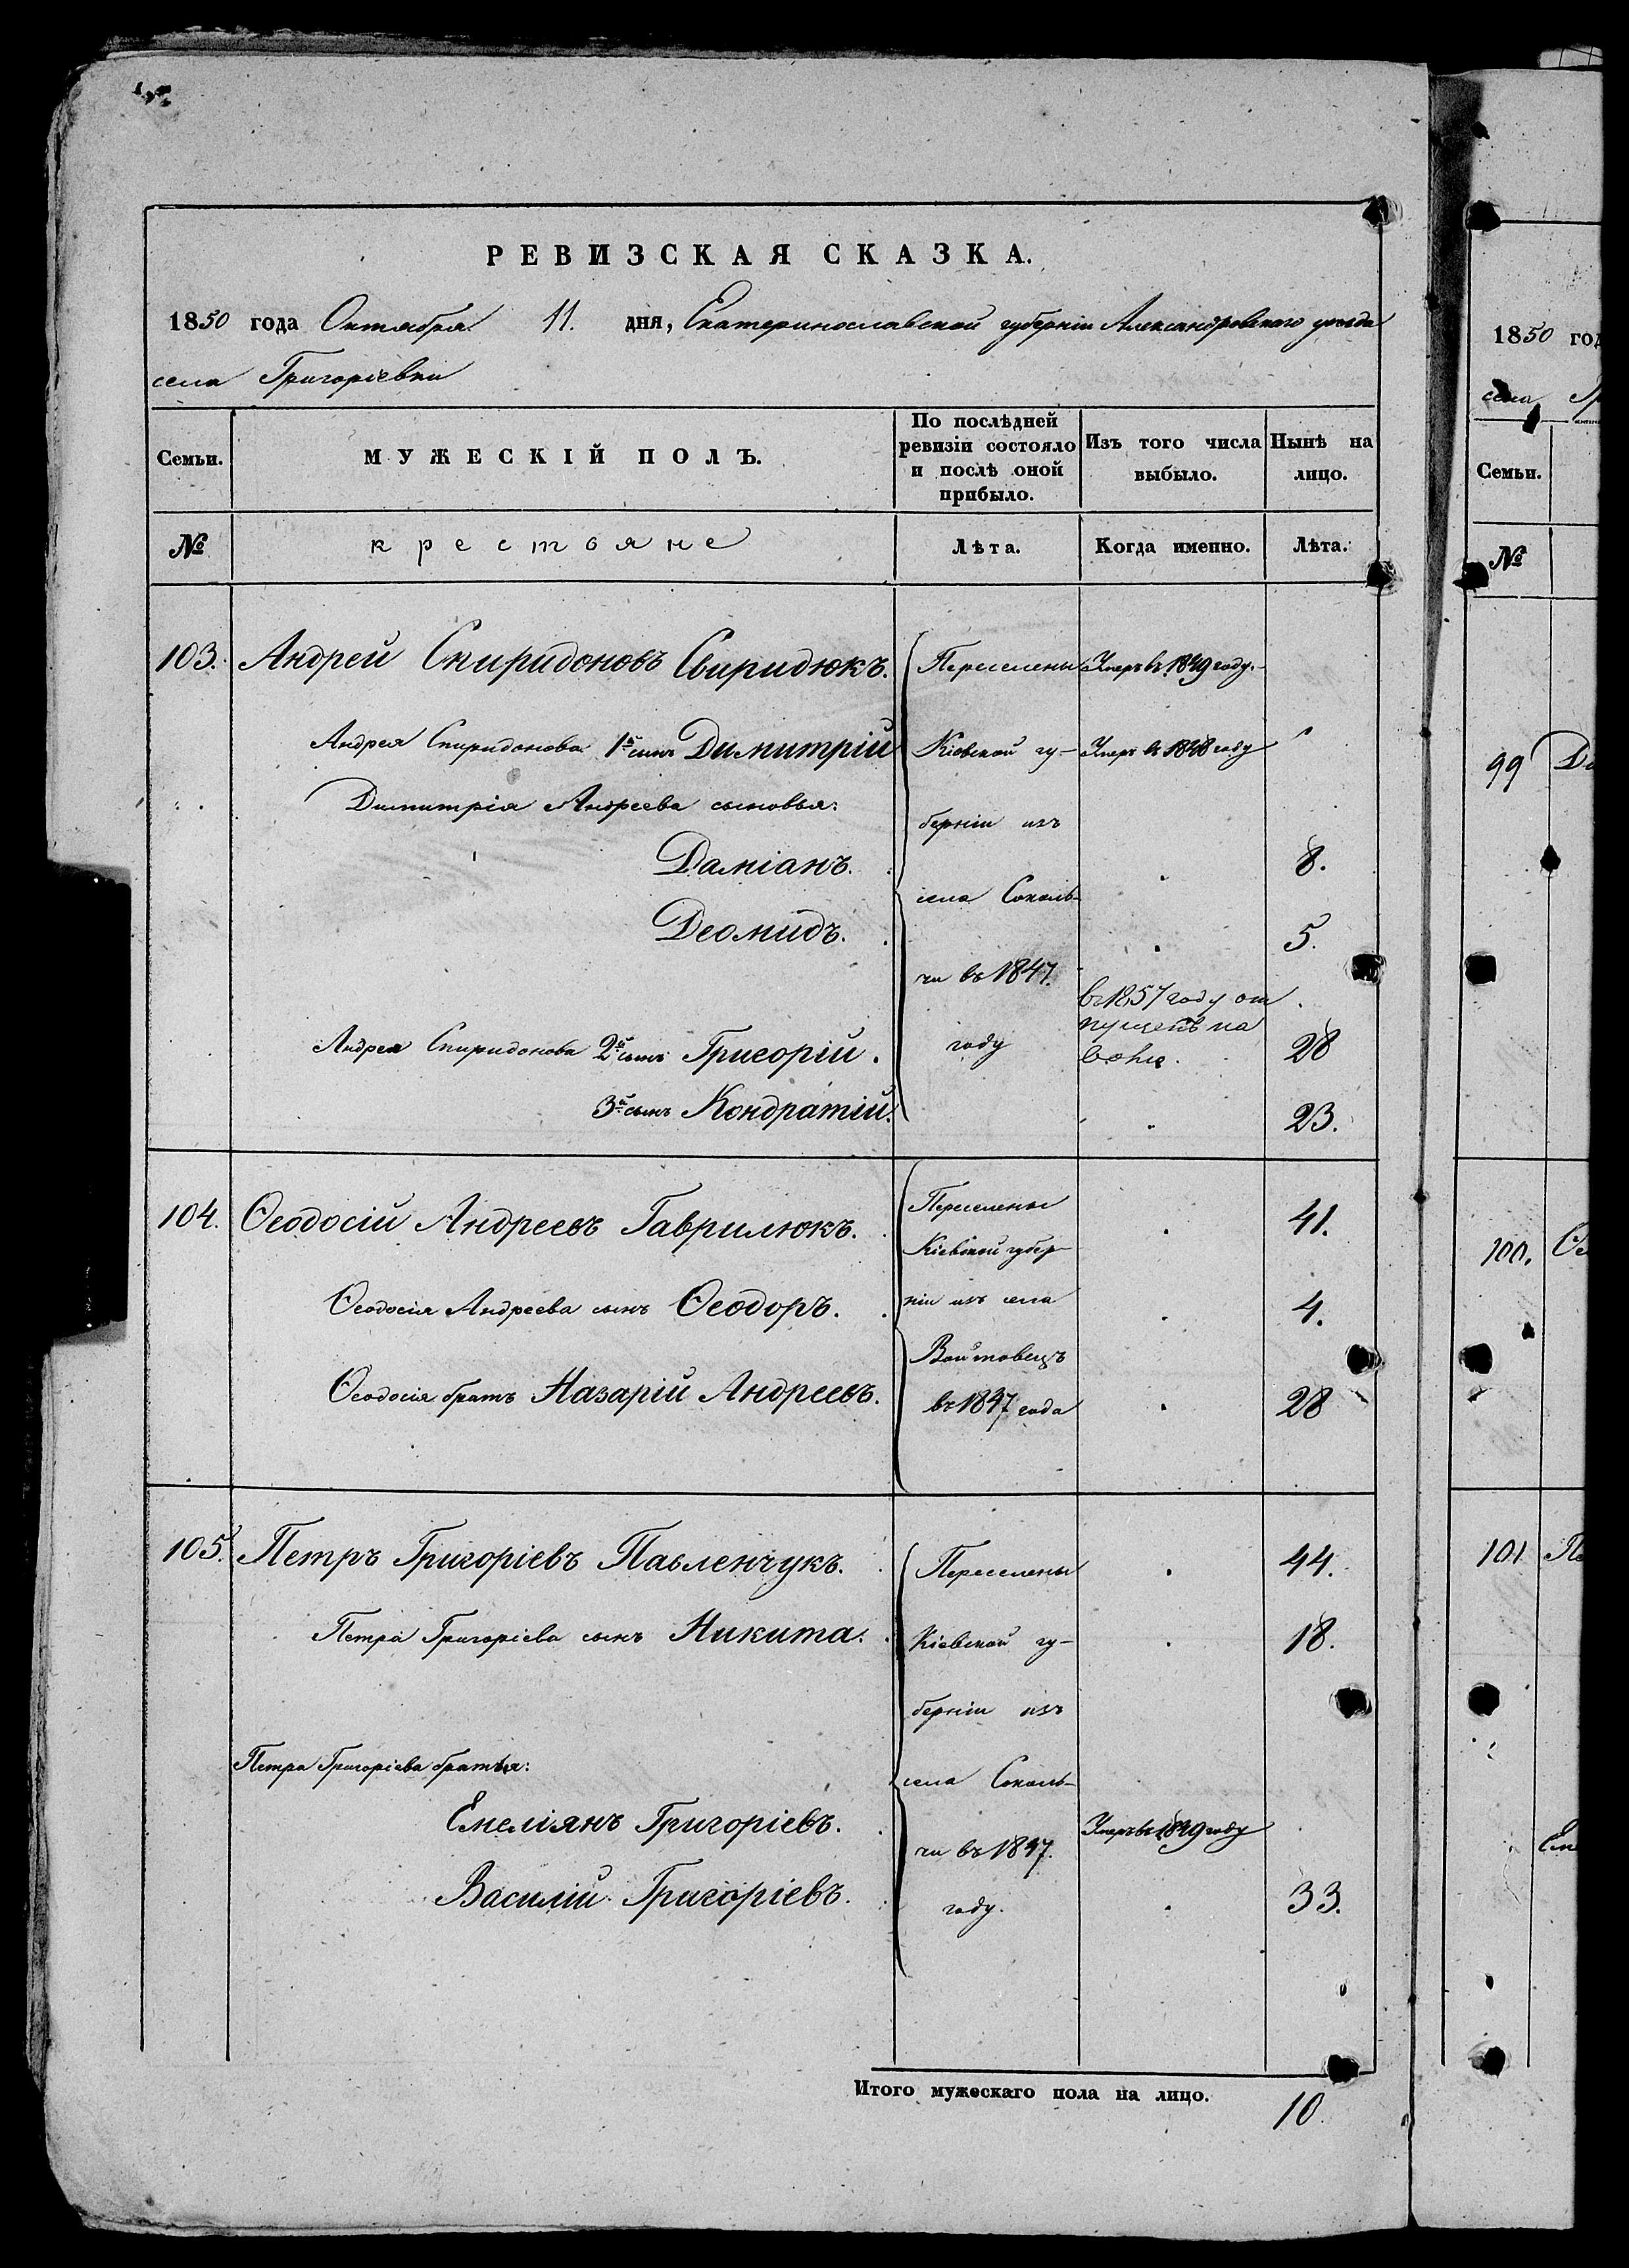 РЕВИЗСКАЯ СКАЗКА.
1850 года Октября 11. дня, Екатеринославской губерніи Александровского уезда
села Григоріевки
Семьи.
МУЖЕСКІЙ ПОЛЪ.
По послѣдней
ревизіи состояло
и послѣ оной
прибыло.
Изъ того числа
выбыло.
Нынѣ на
лицо.
№
крестьяне
Лѣта.
Когда именно.
Лѣта.
103. Андрей Спиридоновъ Свиридюкъ. Переселены Умеръ въ 1849 году.
Андрея Спиридонова 1й сынъ Димитрій Кіевской гу- Умеръ въ 1848 году
Димитрія Андреева сыновья: берніи изъ
Даміанъ. 8.
села Соколь-
Деомидъ. 5.
чи въ 1847.
в 1857 году от
пущенъ на
волю.
Андрея Спиридонова 2й сынъ Григорій. году 28
3й сынъ Кондратій. 23.
104. Ѳеодосій Андреевъ Гаврилюкъ. Переселены 41.
Кіевской губер-
Ѳеодосія Андреева сынъ Ѳеодоръ. ніи изъ села 4.
Войтовецъ
Ѳеодосія братъ Назарій Андреевъ. въ 1847 года 28
105. Петръ Григоріевъ Павленчукъ. Переселены 44.
Петра Григоріева сынъ Никита. Кіевской гу- 18.
берніи изъ
Петра Григоріева братья: села Соколь-
Емеліянъ Григоріевъ. Умеръ въ 1849 году
чи въ 1847.
Василій Григоріевъ. году. 33.
Итого мужескаго пола на лицо.
10.
1850 год
села
Семьи.
№
99
100.
101